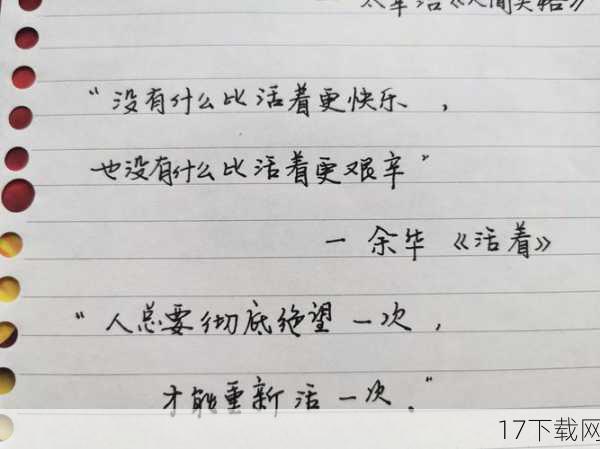 — 太宰治《人间失格》
“没有什么比活着更快乐，
也没有什么比活着更艰辛”
— 余华《活着》
“人总要彻底绝望一次，
才能重新活一次.”
17下载网